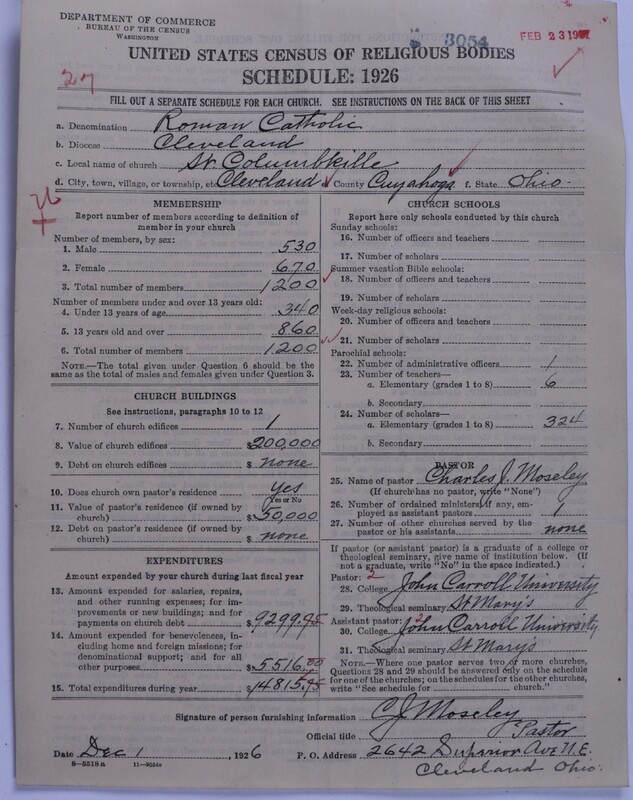 DEPARTMENT OF COMMERCE
BUREAU OF THE CENSUS
WASHINGTON
3054
FEB 23 1927
UNITED STATES CENSUS OF RELIGIOUS BODIES
SCHEDULE: 1926
27
FILL OUT A SEPARATE SCHEDULE FOR EACH CHURCH. SEE INSTRUCTIONS ON THE BACK OF THIS SHEET
a. Denomination Roman Catholic
b. Diocese Cleveland
c. Local name of church St. Columbkille
d. City, town, village, or township, etc. Cleveland e. County Cuyahoga f. State Ohio
MEMBERSHIP
Report number of members according to definition of
member in your church
Number of members, by sex:
1. Male 530
2. Female 670
3. Total number of members 1200
Number of members under and over 13 years old:
4. Under 13 years of age 340
5. 13 years old and over 860
6. Total number of members 1200
NOTE.—The total given under Question 6 should be
same as the total of males and females given under Question 3.
CHURCH BUILDINGS
See instructions, paragraphs 10 to 12
7. Number of church edifices 1
8. Value of church edifices $200,000
9. Debt on church edifices $ none
10. Does church own pastor's residence Yes
Yes or No
11. Value of pastor's residence (if owned by
church) $50,000
12. Debt on pastor's residence (if owned by
church) $ none
EXPENDITURES
Amount expended by your church during last fiscal year
13. Amount expended for salaries, repairs,
and other running expenses; for im-
provements or new buildings; and for
payments on church debt $9299.95
14. Amount expended for benevolences, in-
cluding home and foreign missions; for
denominational support; and for all
other purposes $5516.00
15. Total expenditures during year $14815.95
CHURCH SCHOOLS
Report here only schools conducted by this church
Sunday schools:
16. Number of officers and teachers
17. Number of scholars
Summer vacation Bible schools:
18. Number of officers and teachers
19. Number of scholars
Week-day religious schools:
20. Number of officers and teachers
21. Number of scholars
Parochial schools:
22. Number of administrative officers 1
23. Number of teachers—
a. Elementary (grades 1 to 8) 6
b. Secondary
24. Number of scholars—
a. Elementary (grades 1 to 8) 324
b. Secondary
PASTOR
25. Name of pastor Charles J. Moseley
(If church has no pastor, write "None")
26. Number of ordained ministers, if any, em-
ployed as assistant pastors 1
27. Number of other churches served by the
pastor or his assistants none
If pastor (or assistant pastor) is a graduate of a college or
theological seminary, give name of institution below. (If
not a graduate, write "No" in the space indicated.)
Pastor: 2
28. College John Carroll University
29. Theological seminary St Mary's
Assistant pastor: 2
30. College John Carroll University
31. Theological seminary St Mary's
NOTE.—Where one pastor serves two or more churches,
Questions 28 and 29 should be answered only on the schedule
for one of the churches; on the schedules for the other churches,
write "See schedule for church."
Signature of person furnishing information C J Moseley
Official title Pastor
Date Dec 1, 1926 P. O. Address 2642 Superior Ave N.E.
Cleveland Ohio.
8—5518a 11—9054a